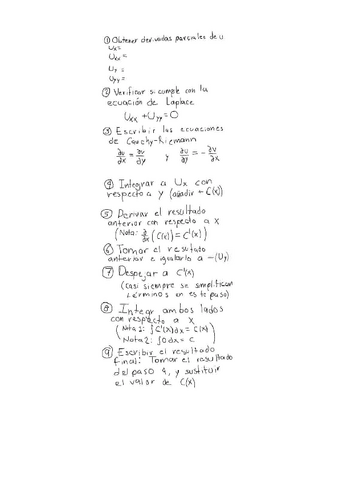 ① Obtener derivadas parciales de u
Ux=
Uxx =
Uy =
Uyy =
② Verificar si cumple con la
ecuación de Laplace
Uxx + Uyy = 0
③ Escribir las ecuaciones
de Cauchy-Riemann
∂u/∂x = ∂v/∂y y ∂u/∂y = - ∂v/∂x
④ Integrar a Ux con
respecto a y (añadir + C(x))
⑤ Derivar el resultado
anterior con respecto a x
(Nota: ∂/∂x (C(x)) = C'(x))
⑥ Tomar el resultado
anterior e igualarlo a -(Uy)
⑦ Despejar a C'(x)
(casi siempre se simplifican
términos en este paso)
⑧ Integrar ambos lados
con respecto a x
(Nota 1: ∫C'(x)dx = C(x)
Nota 2: ∫0dx = C)
⑨ Escribir el resultado
final: Tomar el resultado
del paso 4, y sustituir
el valor de C(x)